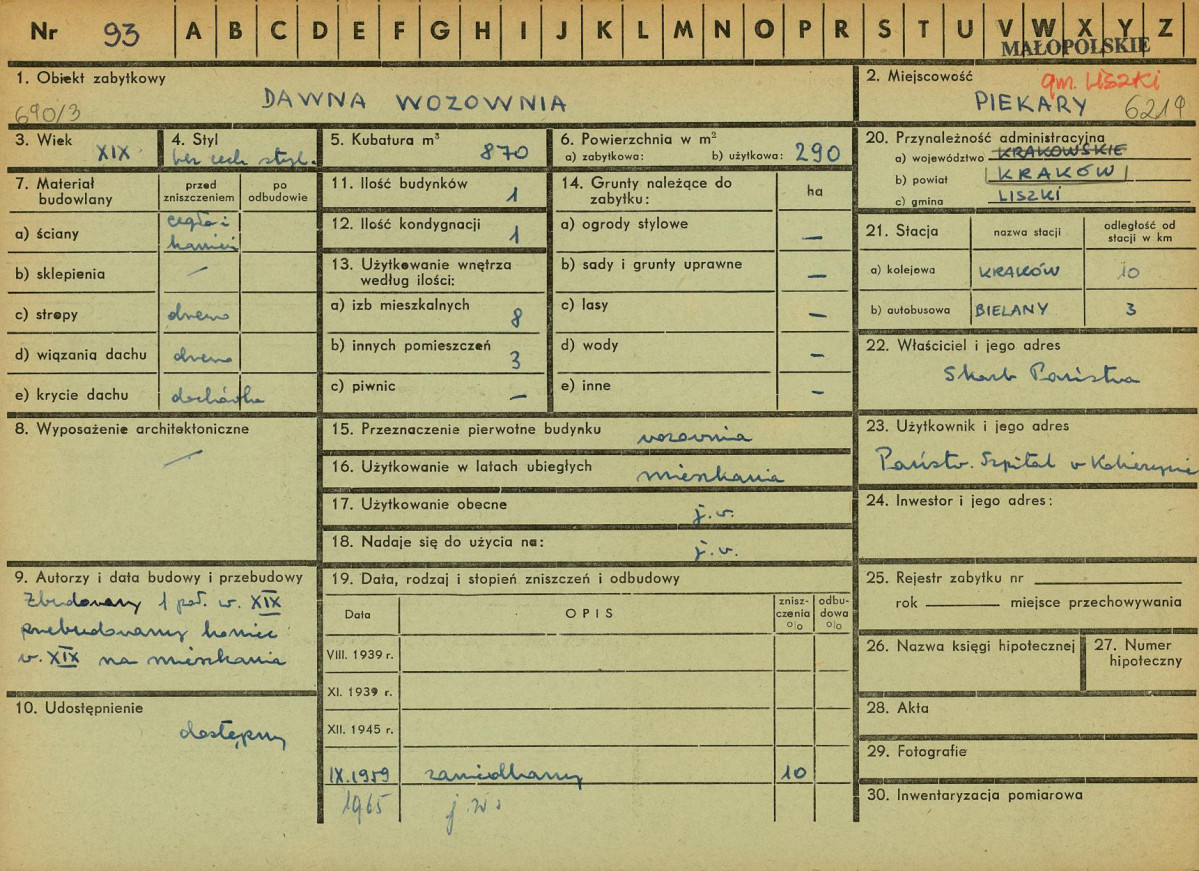 Nr 93 A B C D E F G H I J K L M N O P R S T U V W X Y Z
MAŁOPOLSKIE
1. Obiekt zabytkowy
DAWNA WOZOWNIA
690/3
2. Miejscowość
gm. LISZKI
PIEKARY 6219
3. Wiek
XIX
4. Styl
bez cech styl.
5. Kubatura m³
870
6. Powierzchnia w m²
a) zabytkowa: b) użytkowa: 290
7. Materiał budowlany
przed zniszczeniem
po odbudowie
a) ściany cegła i kamień
b) sklepienia —
c) stropy drewno
d) wiązania dachu drewno
e) krycie dachu dachówka
8. Wyposażenie architektoniczne
—
9. Autorzy i data budowy i przebudowy
Zbudowany 1 poł. w. XIX
przebudowany koniec
w. XIX na mieszkania
10. Udostępnienie
dostępny
11. Ilość budynków 1
12. Ilość kondygnacji 1
13. Użytkowanie wnętrza
według ilości:
a) izb mieszkalnych 8
b) innych pomieszczeń 3
c) piwnic —
14. Grunty należące do
zabytku:
ha
a) ogrody stylowe —
b) sady i grunty uprawne —
c) lasy —
d) wody —
e) inne —
15. Przeznaczenie pierwotne budynku wozownia
16. Użytkowanie w latach ubiegłych mieszkania
17. Użytkowanie obecne j.w.
18. Nadaje się do użycia na: j.w.
19. Data, rodzaj i stopień zniszczeń i odbudowy
Data OPIS znisz-czenia % odbu-dowa %
VIII. 1939 r.
XI. 1939 r.
XII. 1945 r.
IX.1959 zaniedbany 10
1965 j.w.
20. Przynależność administracyjna
a) województwo KRAKOWSKIE
b) powiat KRAKÓW
c) gmina LISZKI
21. Stacja
nazwa stacji
odległość od stacji w km
a) kolejowa KRAKÓW 10
b) autobusowa BIELANY 3
22. Właściciel i jego adres
Skarb Państwa
23. Użytkownik i jego adres
Państw. Szpital w Kobierzynie
24. Inwestor i jego adres:
25. Rejestr zabytku nr
rok miejsce przechowywania
26. Nazwa księgi hipotecznej
27. Numer hipoteczny
28. Akta
29. Fotografie
30. Inwentaryzacja pomiarowa